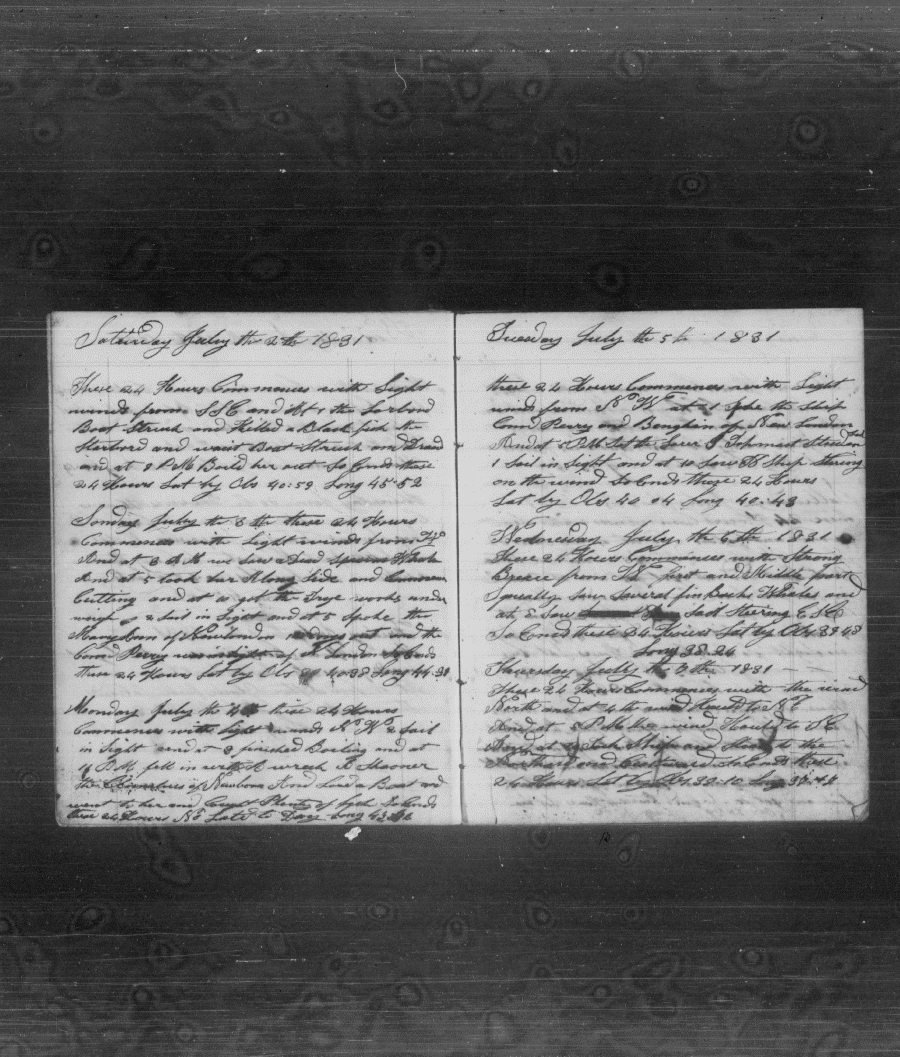 Saturday July the 2th 1831
These 24 Hours Commences with Light
winds from SSE and at 1 the Larbord
Boat Struck and Killed a Black fish the
Starbord and waist Boat Struck and Drawd
and at 8 P M Boild her out So Ends these
24 Hours Lat by Obs 40:59 Long 45:52
Sonday July the 3th these 24 Hours
Commences with Light winds from
And at 3 A M we Saw a Dead Sperm Whale
And at 5 took her Along Side and Commen
Cutting and at 10 got the Trye works under
weigh 2 Sail in Sight and at 5 Spoke the
Mary Ann of New London out and the
Com Perry in sight of N London So Ends
these 24 Hours Lat by Obs 40:38 Long 44:31
Monday July the 4th these 24 Hours
Commences with Light winds N W 2 Sail
in Sight and at 3 finished Boiling and at
P.M. fell in with A wreck A Scooner
the of And Lord a Boat and
went to her and Caught Plenty of fish So Ends
these 24 Hours No Lat to Day Long 43
Tuesday July the 5th 1831
these 24 Hours Commences with Light
winds from N W at 1 Spoke the Ship
Com Perry and of New London
And at P.M Set the
1 Sail in Sight and at 10 Saw A Ship Stering
on the wind So Ends these 24 Hours
Lat by Obs 40 04 Long 40:43
Wednesday July the 6th 1831
These 24 Hours Commences with Strong
Breese from first and Middle part
Saw Several finbacks Whales and
at 5 Saw Sail Steering E.S.E
So Ends these 24 Hours Lat by Obs 39 48
Long 38:24
Thursday July the 7th 1831
These 24 Hours Commences with the wind
North and at 4 the wind Hauld to N E
And at P.M. the wind Hauld to S E
at 10 Tack Ship and Stood to the
and So Ends these
24 Hours Lat by Obs 39:10 Long